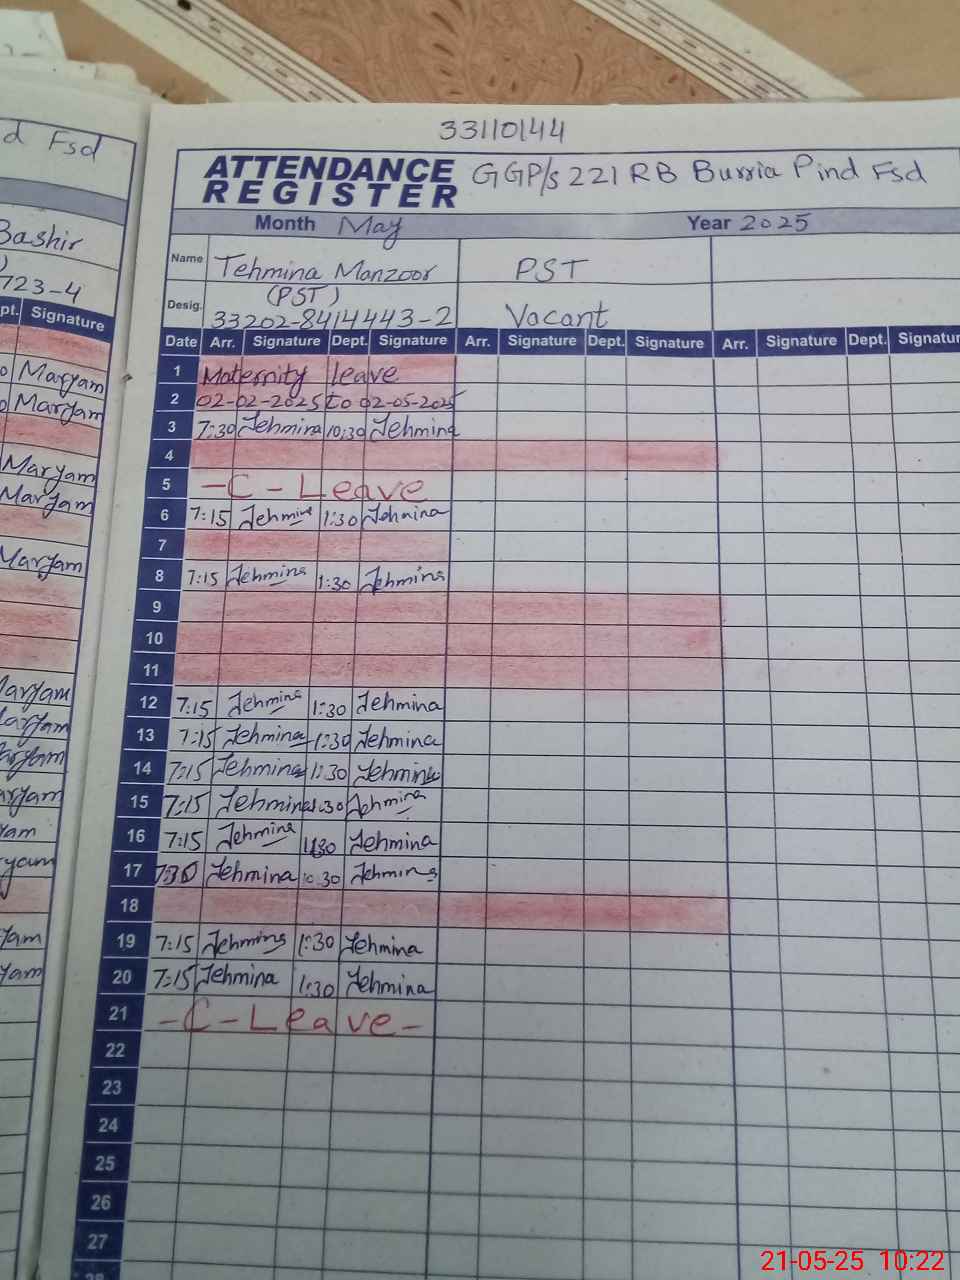 d Fsd
Bashir
723-4
pt. Signature
Maryam
Maryam
Maryam
Maryam
Maryam
Maryam
33110144
ATTENDANCE REGISTER GGP/s 221 RB Burria Pind Fsd
Month May Year 2025
Name Tehmina Manzoor PST
(PST)
Desig. 33202-8414443-2 Vacant
Date Arr. Signature Dept. Signature Arr. Signature Dept. Signature Arr. Signature Dept. Signatur
1 Maternity leave
2 02-02-2025 to 02-05-2025
3 7:30 Tehmina 10:30 Tehmina
4
5 -C-Leave
6 7:15 Tehmina 1:30 Tehmina
7
8 7:15 Tehmina 1:30 Tehmina
9
10
11
12 7:15 Tehmina 1:30 Tehmina
13 7:15 Tehmina 1:30 Tehmina
14 7:15 Tehmina 1:30 Tehmina
15 7:15 Tehmina 1:30 Tehmina
16 7:15 Tehmina 1:30 Tehmina
17 730 Tehmina 10:30 Tehmina
18
19 7:15 Tehmina 1:30 Tehmina
20 7:15 Tehmina 1:30 Tehmina
21 -C-Leave-
22
23
24
25
26
27
28
21-05-25 10:22